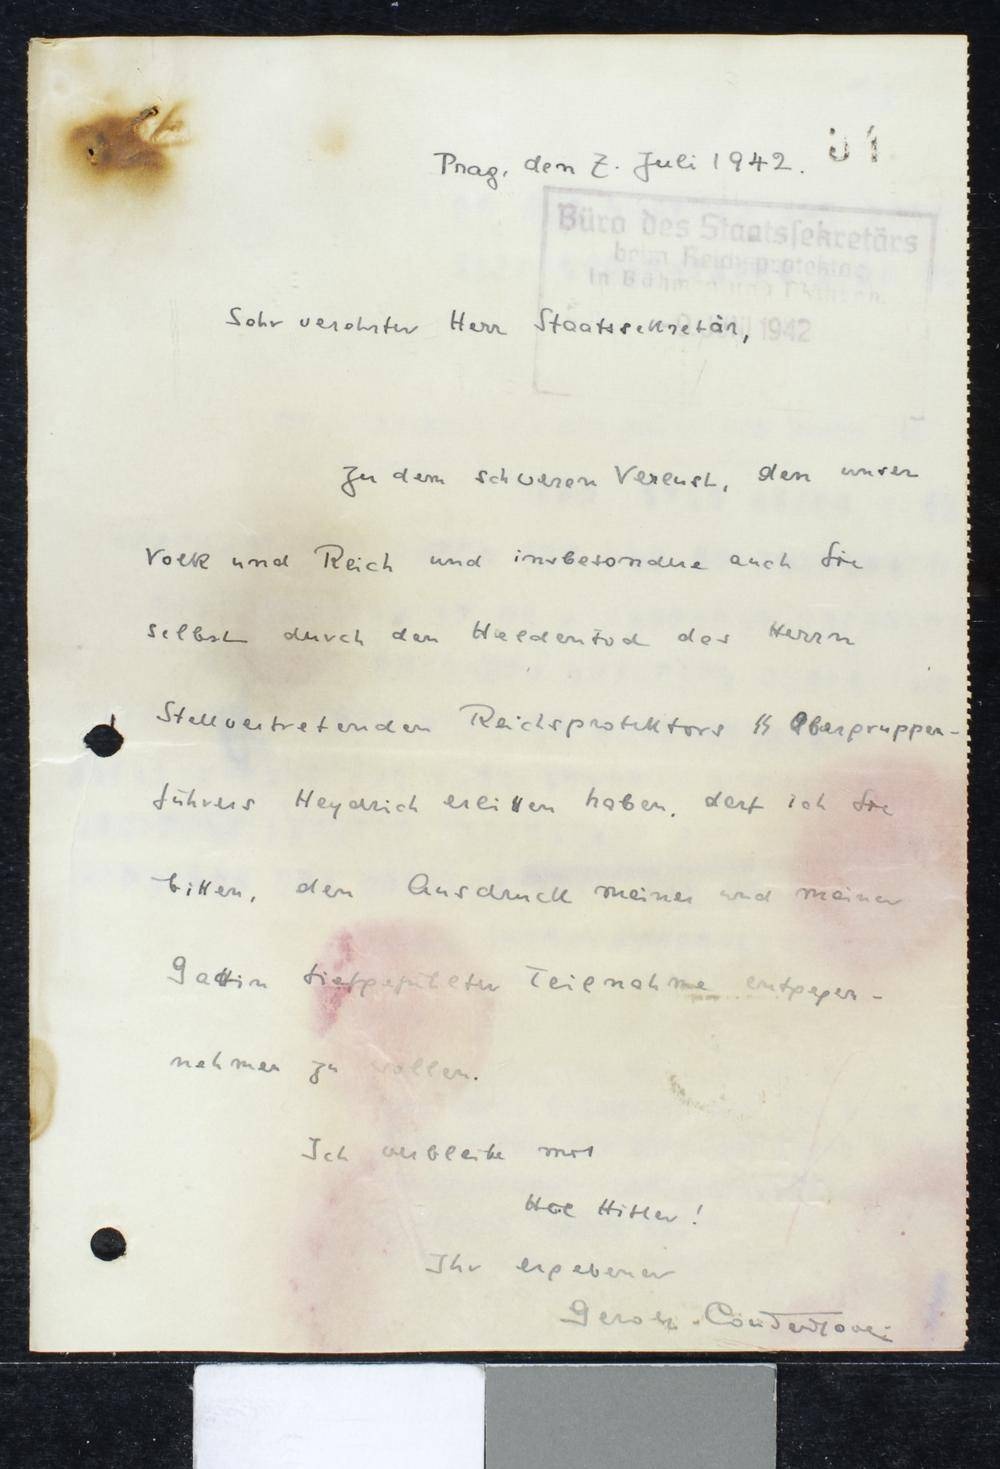 Prag, den 7. Juli 1942.
Büro des Staatssekretärs
beim Reichsprotektor
in Böhmen und Mähren
Juli 1942
Sehr verehrter Herr Staatssekretär,
Zu dem schweren Verlust, den unser
Volk und Reich und insbesondere auch Sie
selbst durch den Heldentod des Herrn
Stellvertretenden Reichsprotektors SS Obergruppen-
führers Heydrich erlitten haben, darf ich Sie
bitten, den Ausdruck meiner und meiner
Gattin tiefgefühlter Teilnahme entgegen-
nehmen zu wollen.
Ich verbleibe mit
Heil Hitler!
Ihr ergebener